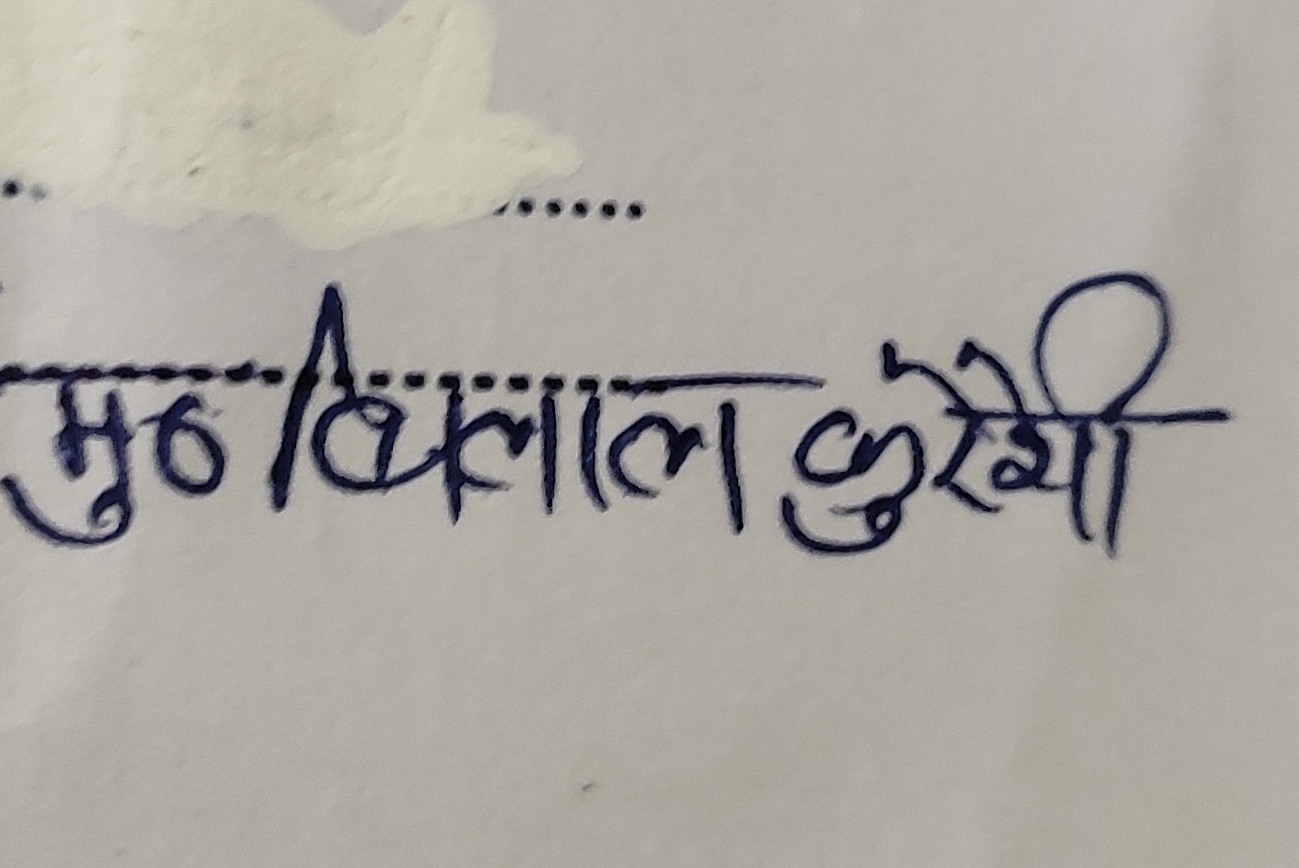 मु० बिलाल कुरैशी